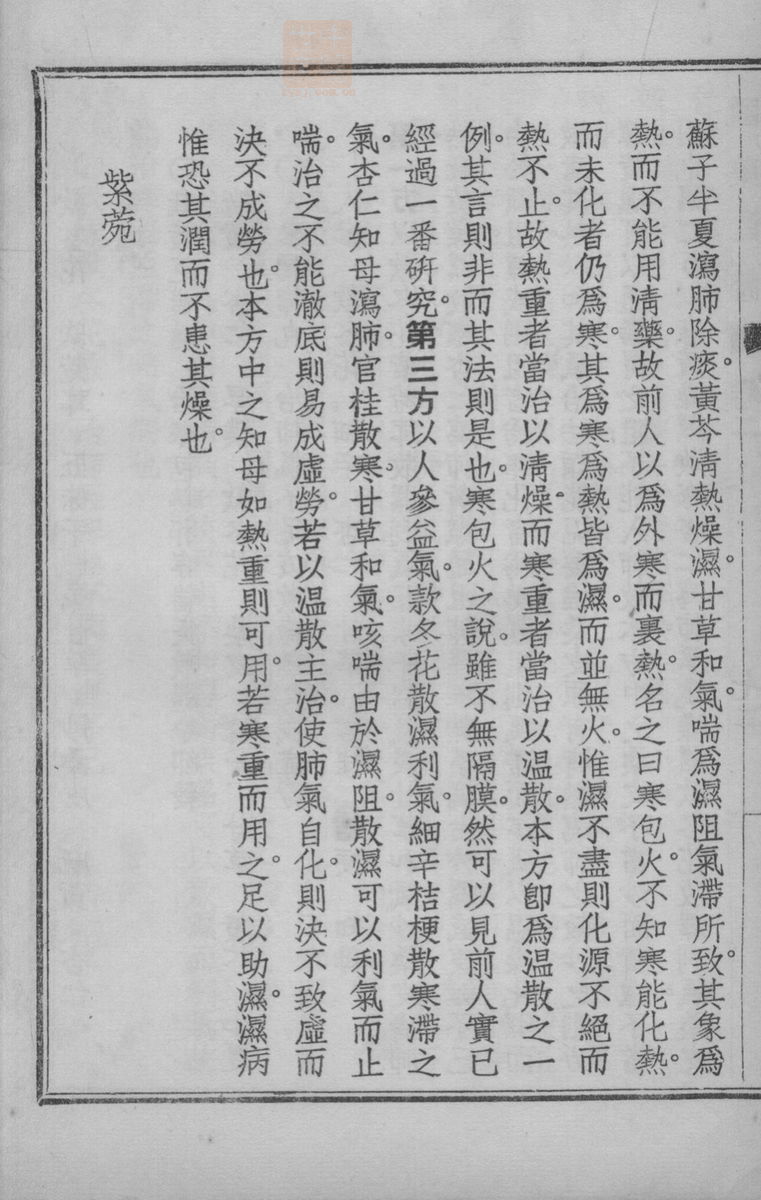 蘇子半夏瀉肺除痰。黃芩淸熱燥濕。甘草和氣。喘爲濕阻氣滯所致。其象爲
熱。而不能用淸藥。故前人以爲外寒而裏熱。名之曰寒包火。不知寒能化熱。
而未化者仍爲寒。其爲寒爲熱皆爲濕。而並無火。惟濕不盡則化源不絕而
熱不止。故熱重者當治以淸燥。而寒重者當治以温散。本方卽爲温散之一
例。其言則非而其法則是也。寒包火之說。雖不無隔膜。然可以見前人實已
經過一番硏究。第三方以人參益氣。款冬花散濕利氣。細辛桔梗散寒滯之
氣。杏仁知母瀉肺。官桂散寒。甘草和氣。咳喘由於濕阻。散濕可以利氣而止
喘。治之不能澈底則易成虛勞。若以温散主治。使肺氣自化。則決不致虛而
決不成勞也。本方中之知母如熱重則可用。若寒重而用之。足以助濕。濕病
惟恐其潤而不患其燥也。
紫菀